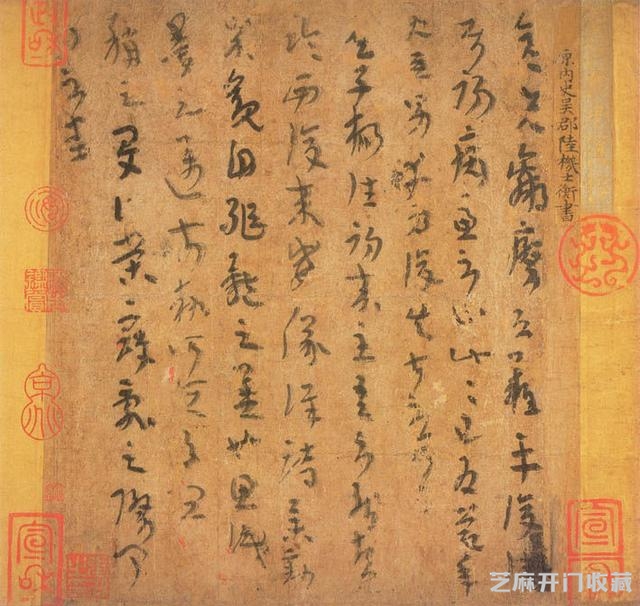 原內史吳郡陸機士衡書
彥先羸瘵恐難平復往
屬初病慮不止此此已為慶承
使唯男幸為復失前憂耳
吳子楊往初來主吾不能盡
臨西復來威儀詳跱舉動
成觀自軀體之美也思識
量之邁前執所恒有宜
稱之夏伯榮寇亂之際聞
問不悉
宣和
芝麻开门收藏